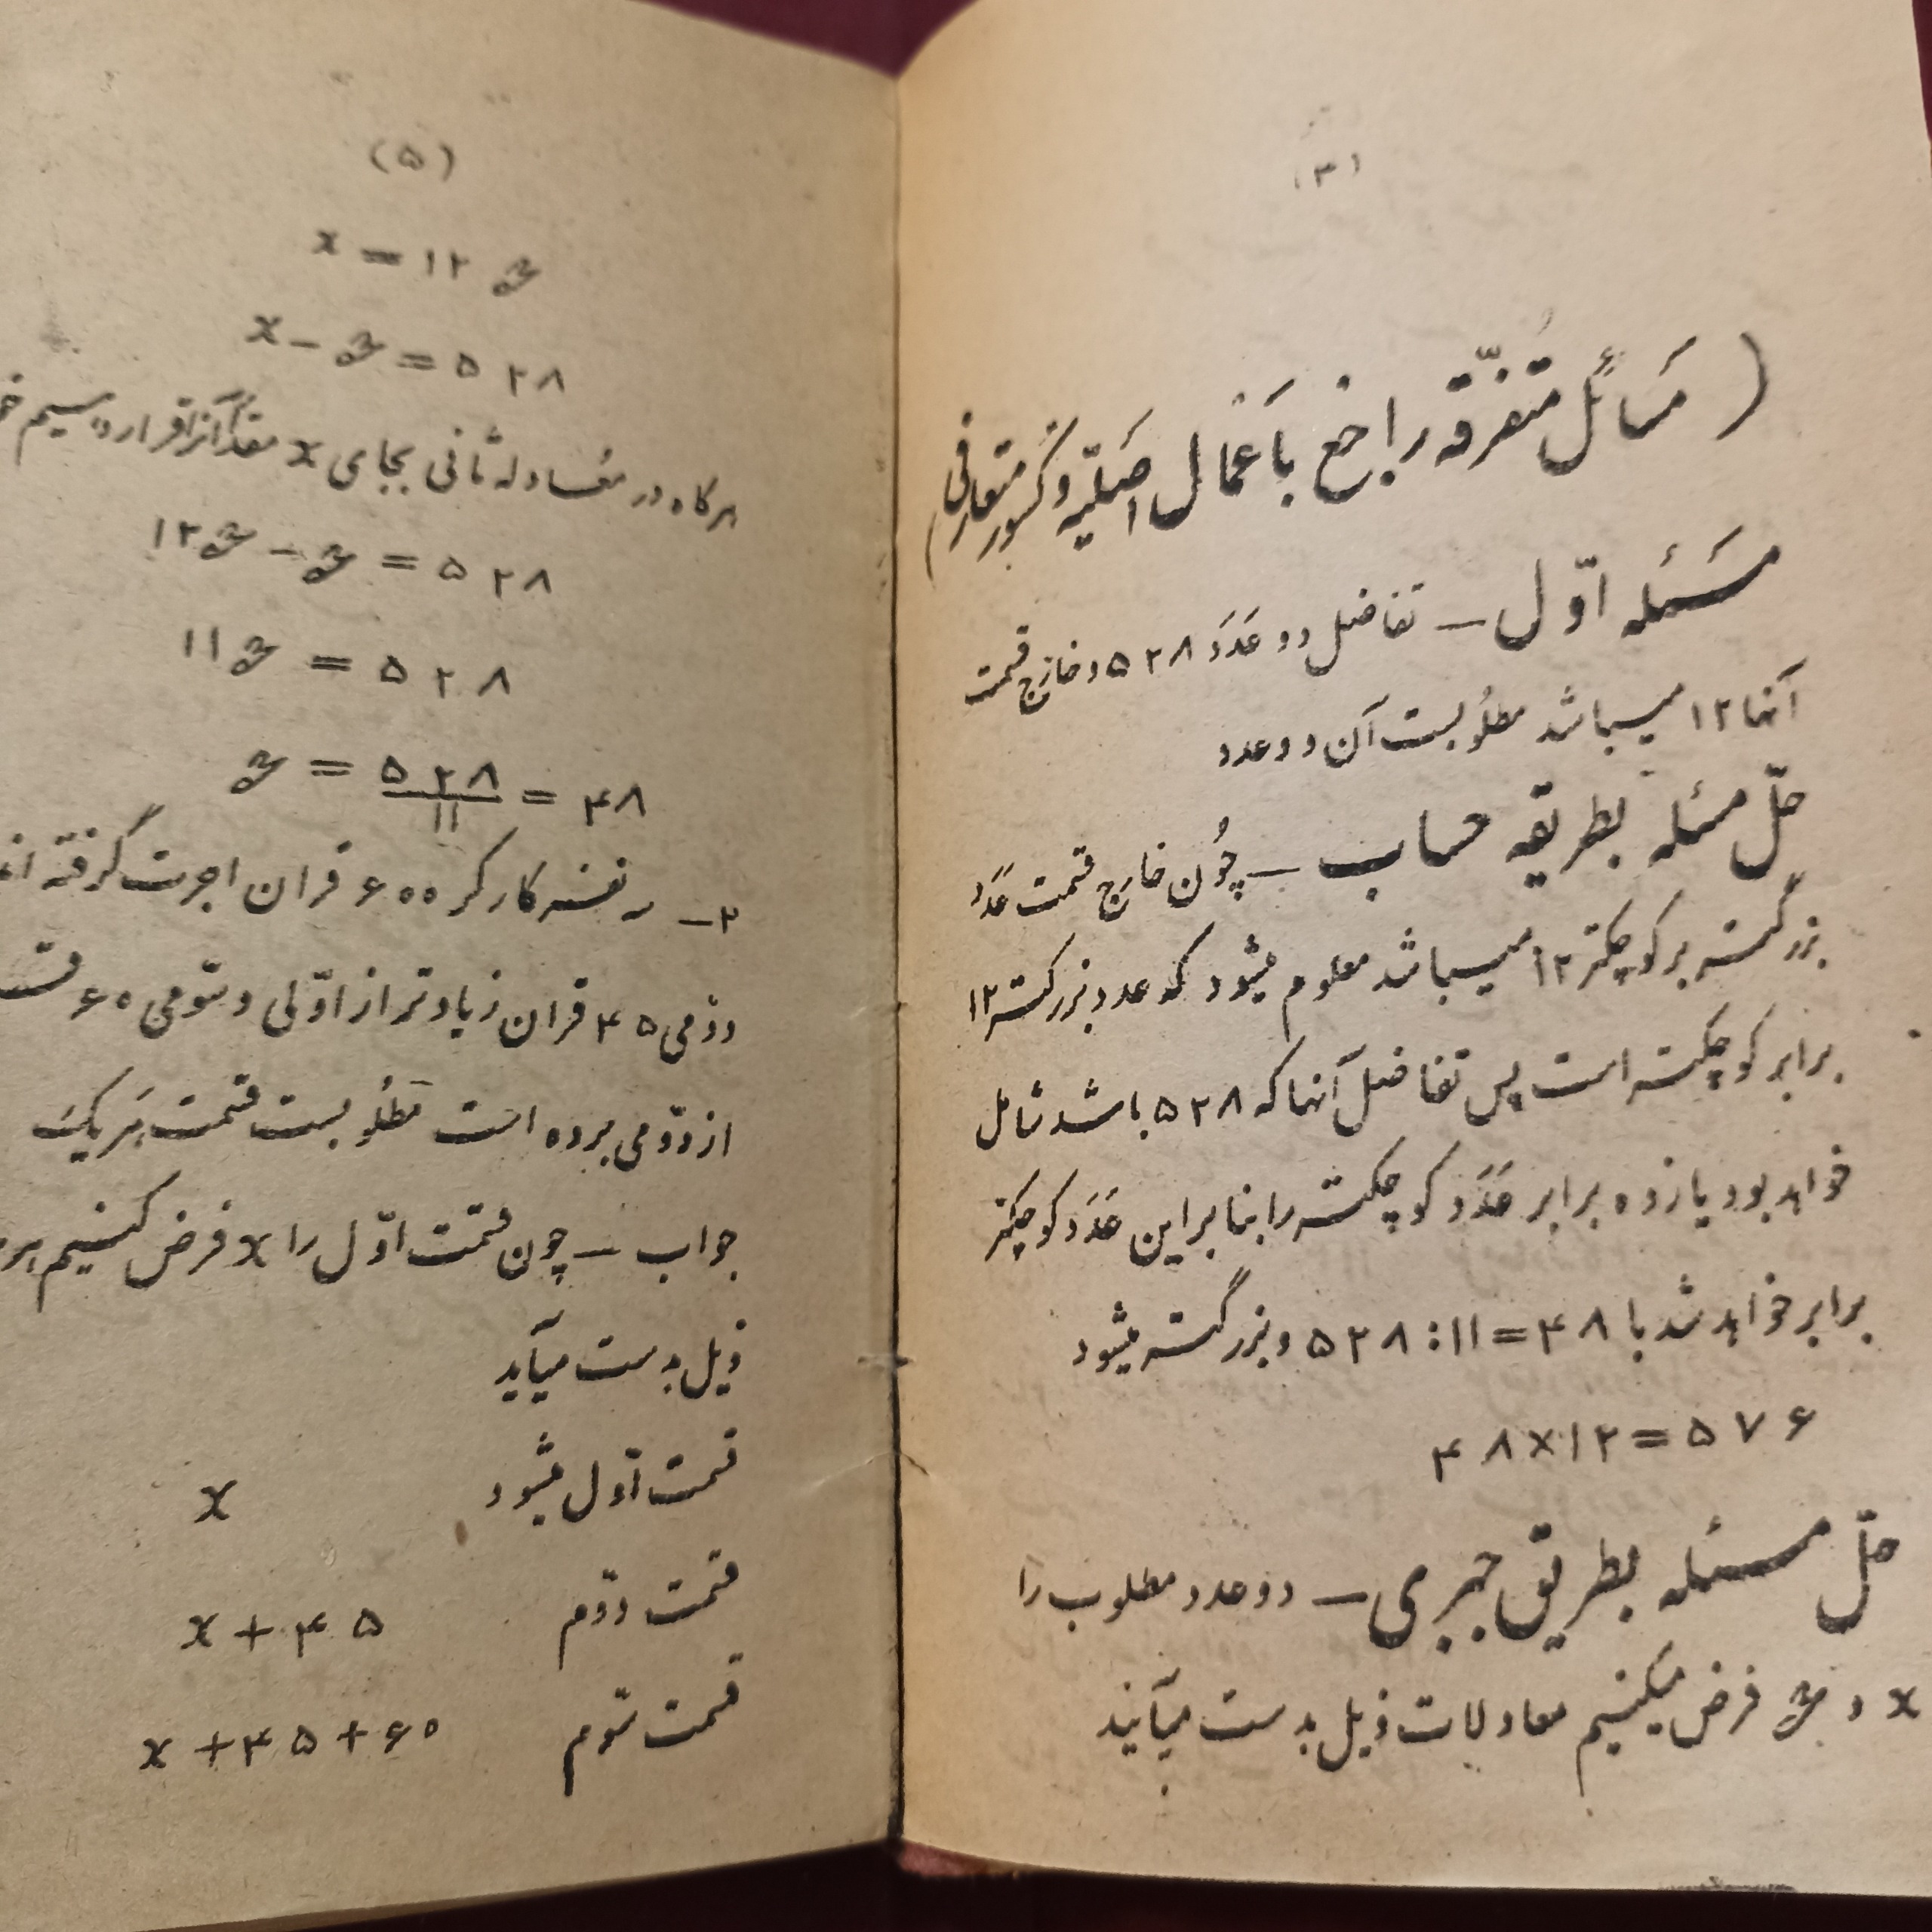 (۳)
( مَسائل متفرّقه راجع باَعْمال اصَلیّه و کسُور متعارفی )
مسَئله اوّل — تفاضل دو عَدَد ۵۲۸ و خارج قسمت
آنها ۱۲ میباشد مطلُوبست آن دو عدد
حلّ مسئله بطریقه حساب — چُون خارج قسمت عَدَد
بزرگتر بر کوچکتر ۱۲ میباشد معلوم میشود که عدد بزرگتر ۱۲
برابر کوچکتر است پس تفاضل آنها که ۵۲۸ باشد شامل
خواهد بود یازده برابر عَدَد کوچکتر را بنابراین عَدَد کوچکتر
برابر خواهد شد با ۵۲۸:۱۱=۴۸ و بزرگتر میشود
۴۸×۱۲=۵۷۶
حلّ مسئله بطریق جبری — دو عدد مطلوب را
x و y فرض میکنیم معادلات ذیل بدست میآیند
(۵)
x = ۱۲ y
x − y = ۵۲۸
هرگاه در مُعادله ثانی بجای x مقدار آنرا قرار دهیم
۱۲y − y = ۵۲۸
۱۱y = ۵۲۸
y = ۵۲۸/۱۱ = ۴۸
۲— سه نفر کارگر ۶۰۰ قران اجرت گرفته اند
دوّمی ۴۵ قران زیادتر از اوّلی و سّومی ۶۰
از دوّمی برده است مَطلُوبست قسمت هَریک
جواب — چون قسمت اوّل را x فرض کنیم
ذیل بدست میآید
قسمت اوّل میشود x
قسمت دوّم x + ۴۵
قسمت سّوم x + ۴۵ + ۶۰